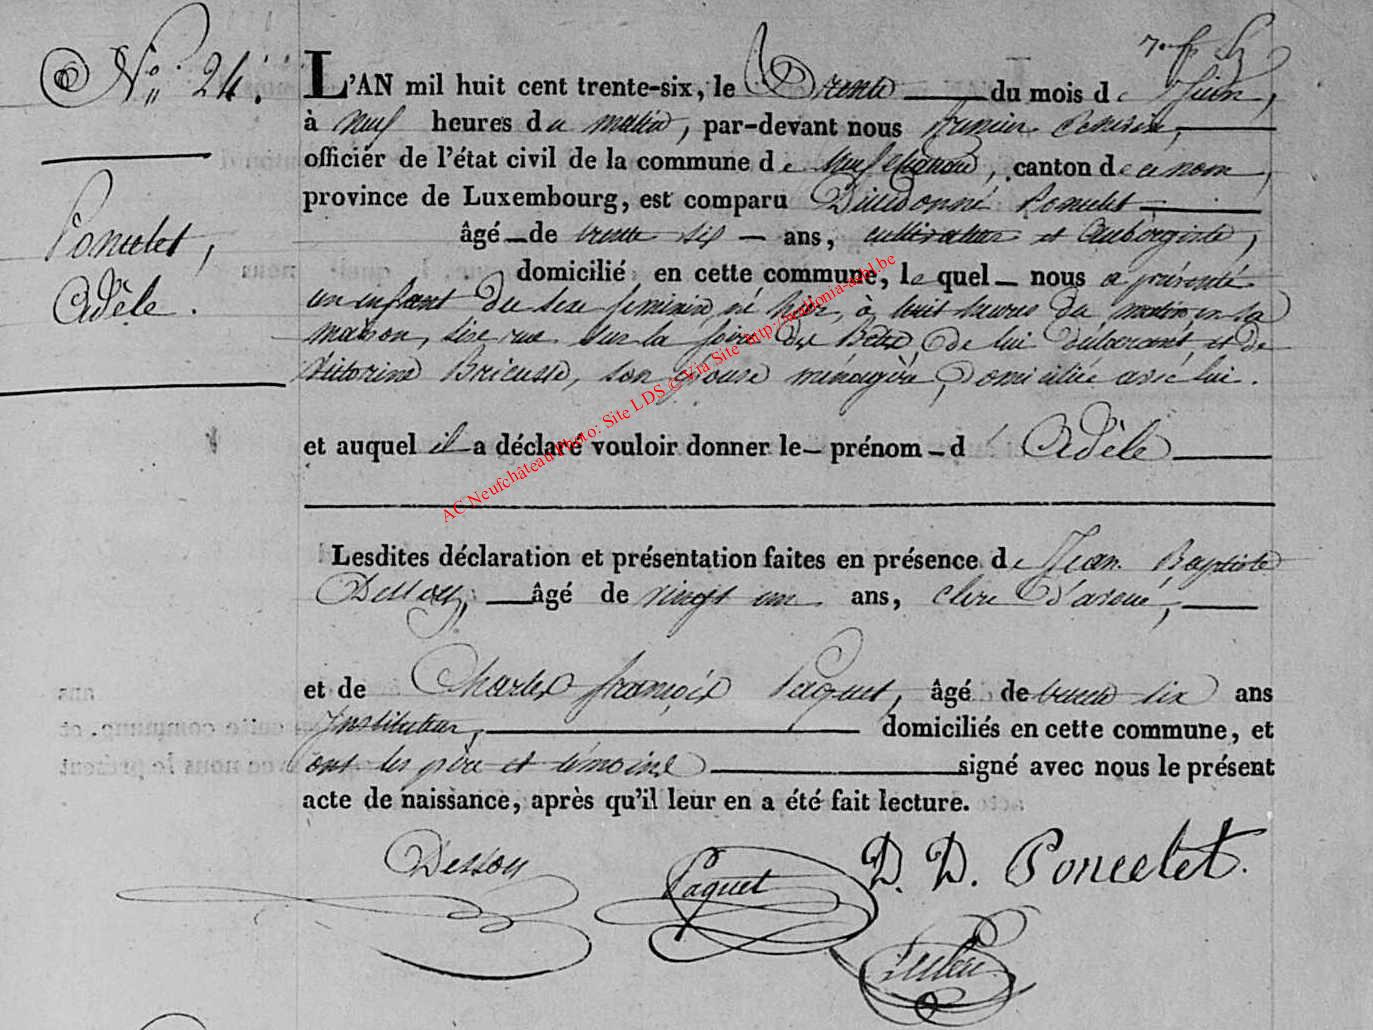 N° 24.
Poncelet,
Adèle.
L'AN mil huit cent trente-six, le trente du mois de Juin,
à neuf heures du matin, par-devant nous
officier de l'état civil de la commune de Neufchâteau, canton de ce nom,
province de Luxembourg, est comparu Dieudonné Poncelet
âgé de trente six ans, cultivateur et Aubergiste,
domicilié en cette commune, lequel nous a présenté
un enfant du sexe féminin, né hier, à huit heures du matin en sa
maison, sise rue sur la foire des Bêtes, de lui déclarant, et de
Victorine Bricusse, son épouse ménagère, domiciliée avec lui.
et auquel il a déclaré vouloir donner le prénom d'Adèle
Lesdites déclaration et présentation faites en présence de Jean Baptiste
Dessoy, âgé de vingt un ans, clerc d'avoué,
et de Charles françois Paquet, âgé de trente six ans
Instituteur, domiciliés en cette commune, et
ont les père et témoins signé avec nous le présent
acte de naissance, après qu'il leur en a été fait lecture.
Dessoy
Paquet
D. D. Poncelet.
AC Neufchâteau Photo: Site LDS © Via Site http://wallonia-asbl.be